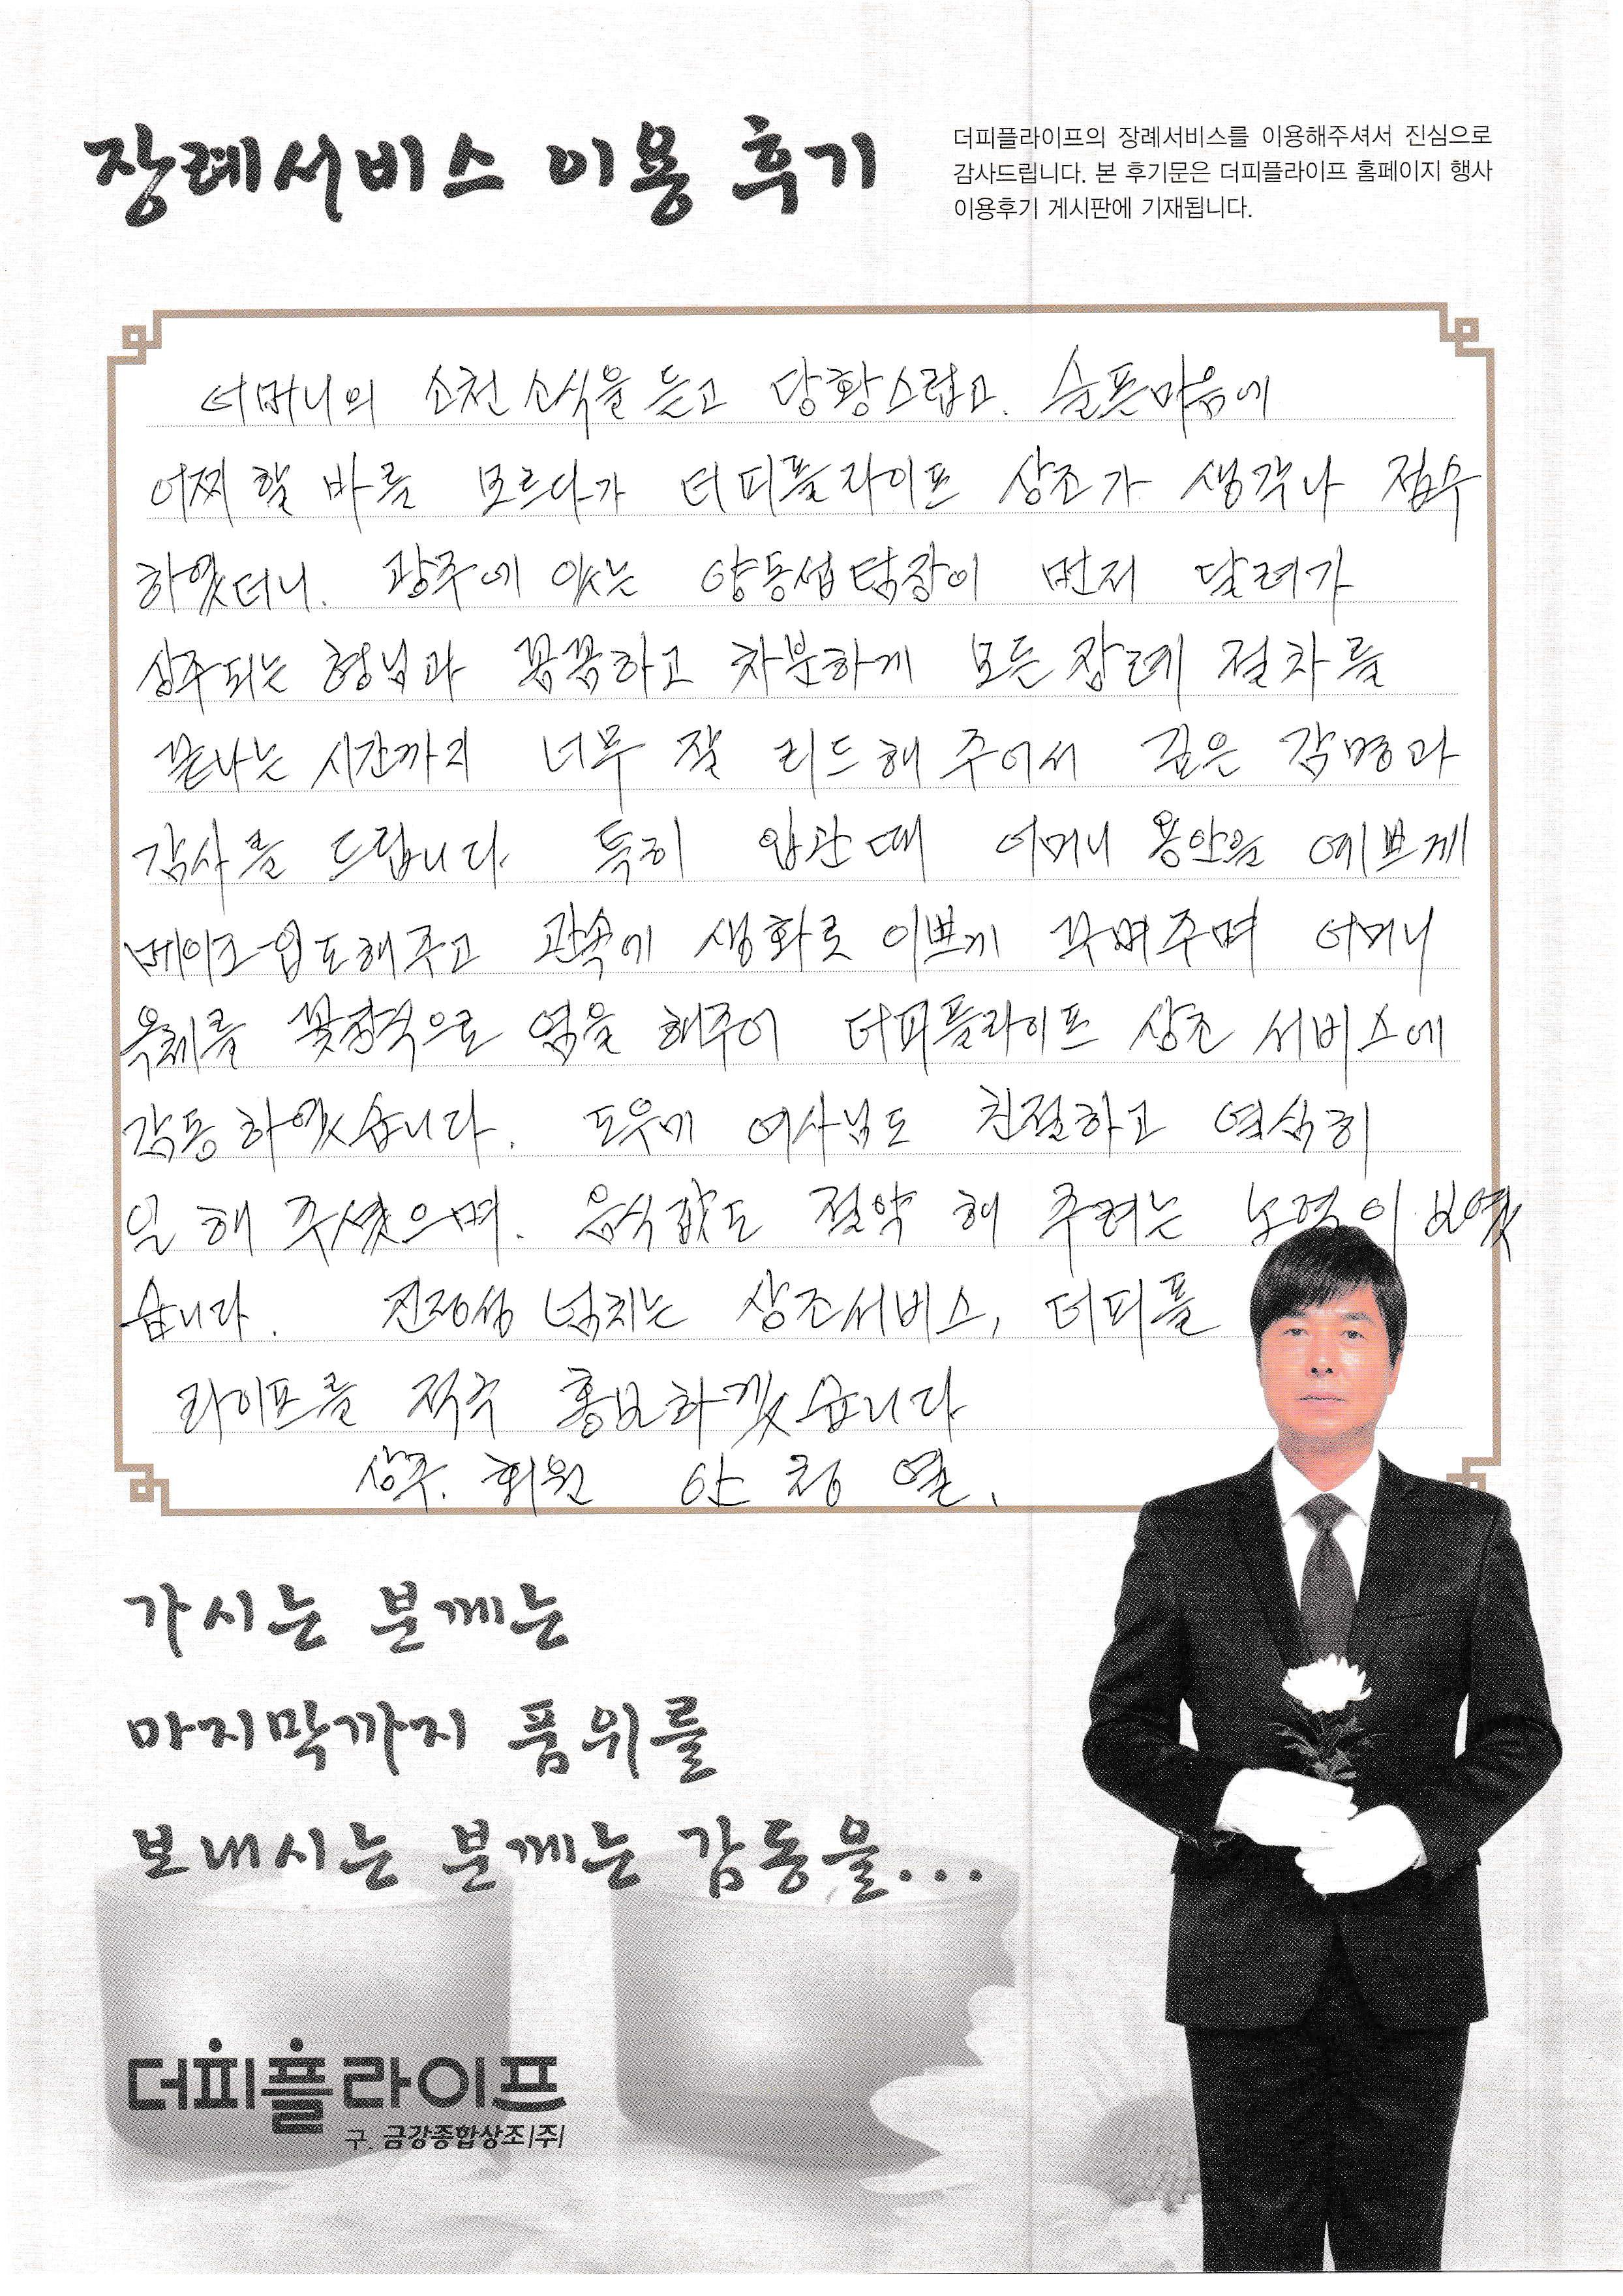 장례서비스 이용 후기
더피플라이프의 장례서비스를 이용해주셔서 진심으로
감사드립니다. 본 후기문은 더피플라이프 홈페이지 행사
이용후기 게시판에 기재됩니다.
어머니의 소천 소식을 듣고 당황스럽고. 슬픈마음에
어찌 할 바를 모르다가 더피플라이프 상조가 생각나 접수
하였더니. 광주에 있는 양동섭팀장이 먼저 달려가
상주되는 형님과 꼼꼼하고 차분하게 모든 장례 절차를
끝나는 시간까지 너무 잘 리드해 주어서 깊은 감명과
감사를 드립니다. 특히 입관 때 어머니 용안을 예쁘게
메이크-업도해주고 관속에 생화로 이쁘게 꾸며주며 어머니
옥체를 꽃장식으로 염을 해주어 더피플라이프 상조 서비스에
감동 하였습니다. 도우미 여사님도 친절하고 열심히
일 해 주셨으며. 음식값도 절약 해 주려는 노력이 보였
습니다. 진정성 넘치는 상조서비스, 더피플
라이프를 적극 홍보하겠습니다
상주. 회원 안 청 열.
가시는 분께는
마지막까지 품위를
보내시는 분께는 감동을...
더피플라이프
구. 금강종합상조|주|